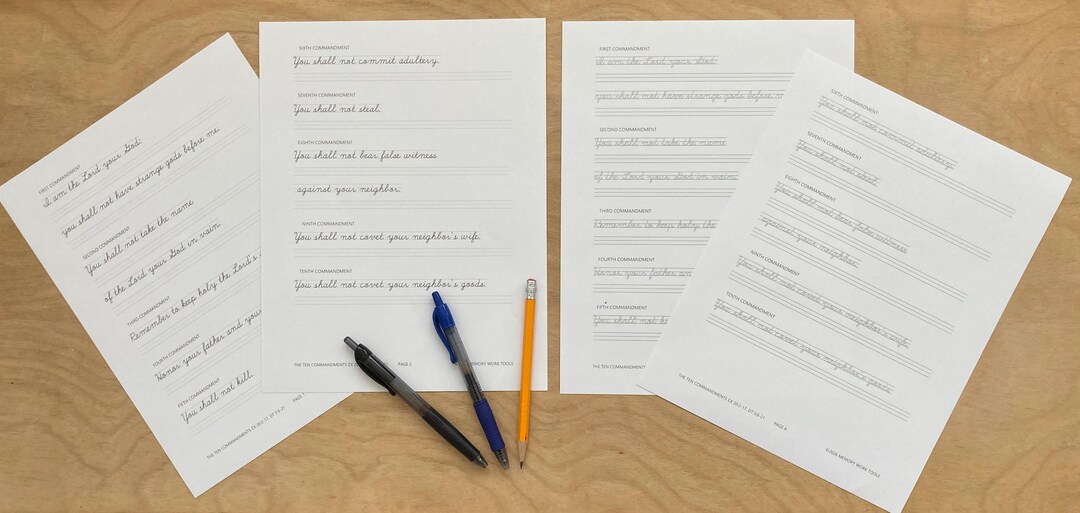 FIRST COMMANDMENT
I am the Lord your God:
you shall not have strange gods before me.
SECOND COMMANDMENT
You shall not take the name
of the Lord your God in vain
THIRD COMMANDMENT
Remember to keep holy the Lord's
FOURTH COMMANDMENT
Honor your father and your
FIFTH COMMANDMENT
You shall not kill.
THE TEN COMMANDMENTS EX 20:2-17, DT 5:6-21 PAGE 1
SIXTH COMMANDMENT
You shall not commit adultery.
SEVENTH COMMANDMENT
You shall not steal.
EIGHTH COMMANDMENT
You shall not bear false witness
against your neighbor.
NINTH COMMANDMENT
You shall not covet your neighbor's wife.
TENTH COMMANDMENT
You shall not covet your neighbor's goods.
THE TEN COMMANDMENTS EX PAGE 2 MEMORY WORK TOOLS
FIRST COMMANDMENT
I am the Lord your God:
you shall not have strange gods before
SECOND COMMANDMENT
You shall not take the name
of the Lord your God in vain
THIRD COMMANDMENT
Remember to keep holy the
FOURTH COMMANDMENT
Honor your father
FIFTH COMMANDMENT
You shall not
THE TEN COMMANDMENTS EX
SIXTH COMMANDMENT
You shall not commit adultery.
SEVENTH COMMANDMENT
You shall not steal.
EIGHTH COMMANDMENT
You shall not bear false witness
against your neighbor.
NINTH COMMANDMENT
You shall not covet your neighbor's wife.
TENTH COMMANDMENT
You shall not covet your neighbor's goods.
THE TEN COMMANDMENTS EX 20:2-17, DT 5:6-21 PAGE MEMORY WORK TOOLS